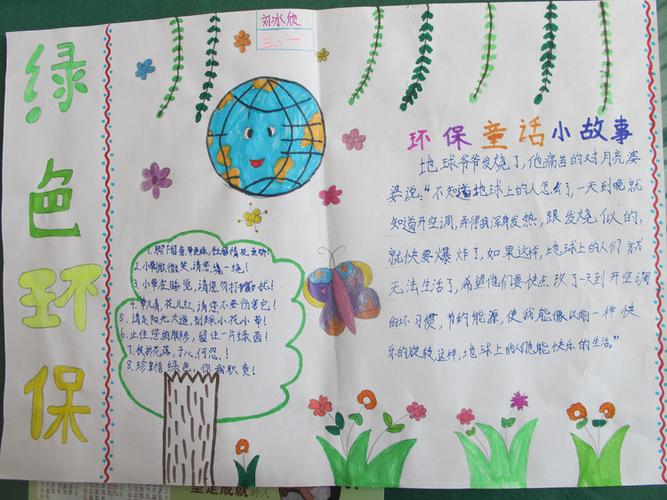 绿色环保
刘冰欣
三、一
环保童话小故事
地球爷爷发烧了，他痛苦的对月亮婆
婆说："不知道地球上的人怎么了，一天到晚就
知道开空调，弄得我浑身发热，跟发烧似的，
就快要爆炸了，如果这样，地球上的人们就
无法生活了，希望他们要快点改了一天到开空调
的坏习惯，节约能源，使我能像以前一样快
乐的旋转，这样，地球上的人们也能快乐的生活。"
2.小草微微笑，请您绕一绕！
3.小草在睡觉，请您勿打扰！
4.草儿青，花儿红，请您不要伤害它！
5.请走阳光大道，别踩小花小草！
6.止住您的脚步，留住一片绿茵！
7.于心何忍！
8.珍惜绿色，你我职责！